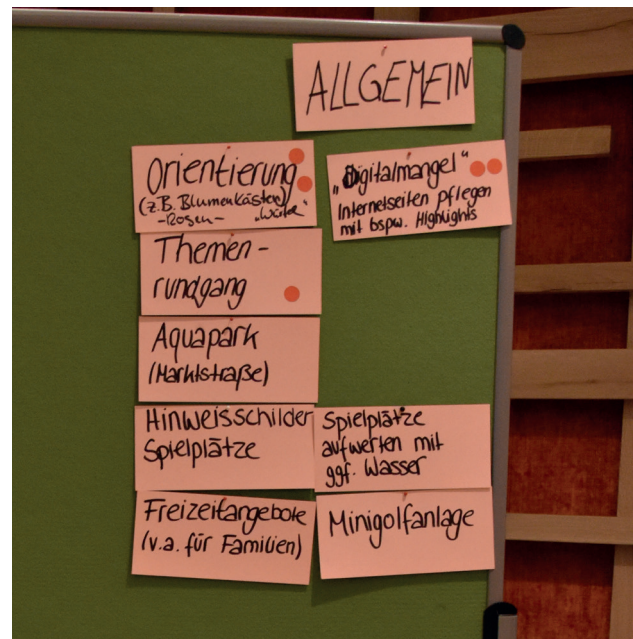 ALLGEMEIN
Orientierung
(z.B. Blumenkästen)
-Rosen- „Würfel"
„Digitalmangel"
Internetseiten pflegen
mit bspw. Highlights
Themen-
rundgang
Aquapark
(Marktstraße)
Hinweisschilder
Spielplätze
Spielplätze
aufwerten mit
ggf. Wasser
Freizeitangebote
(v.a. für Familien)
Minigolfanlage